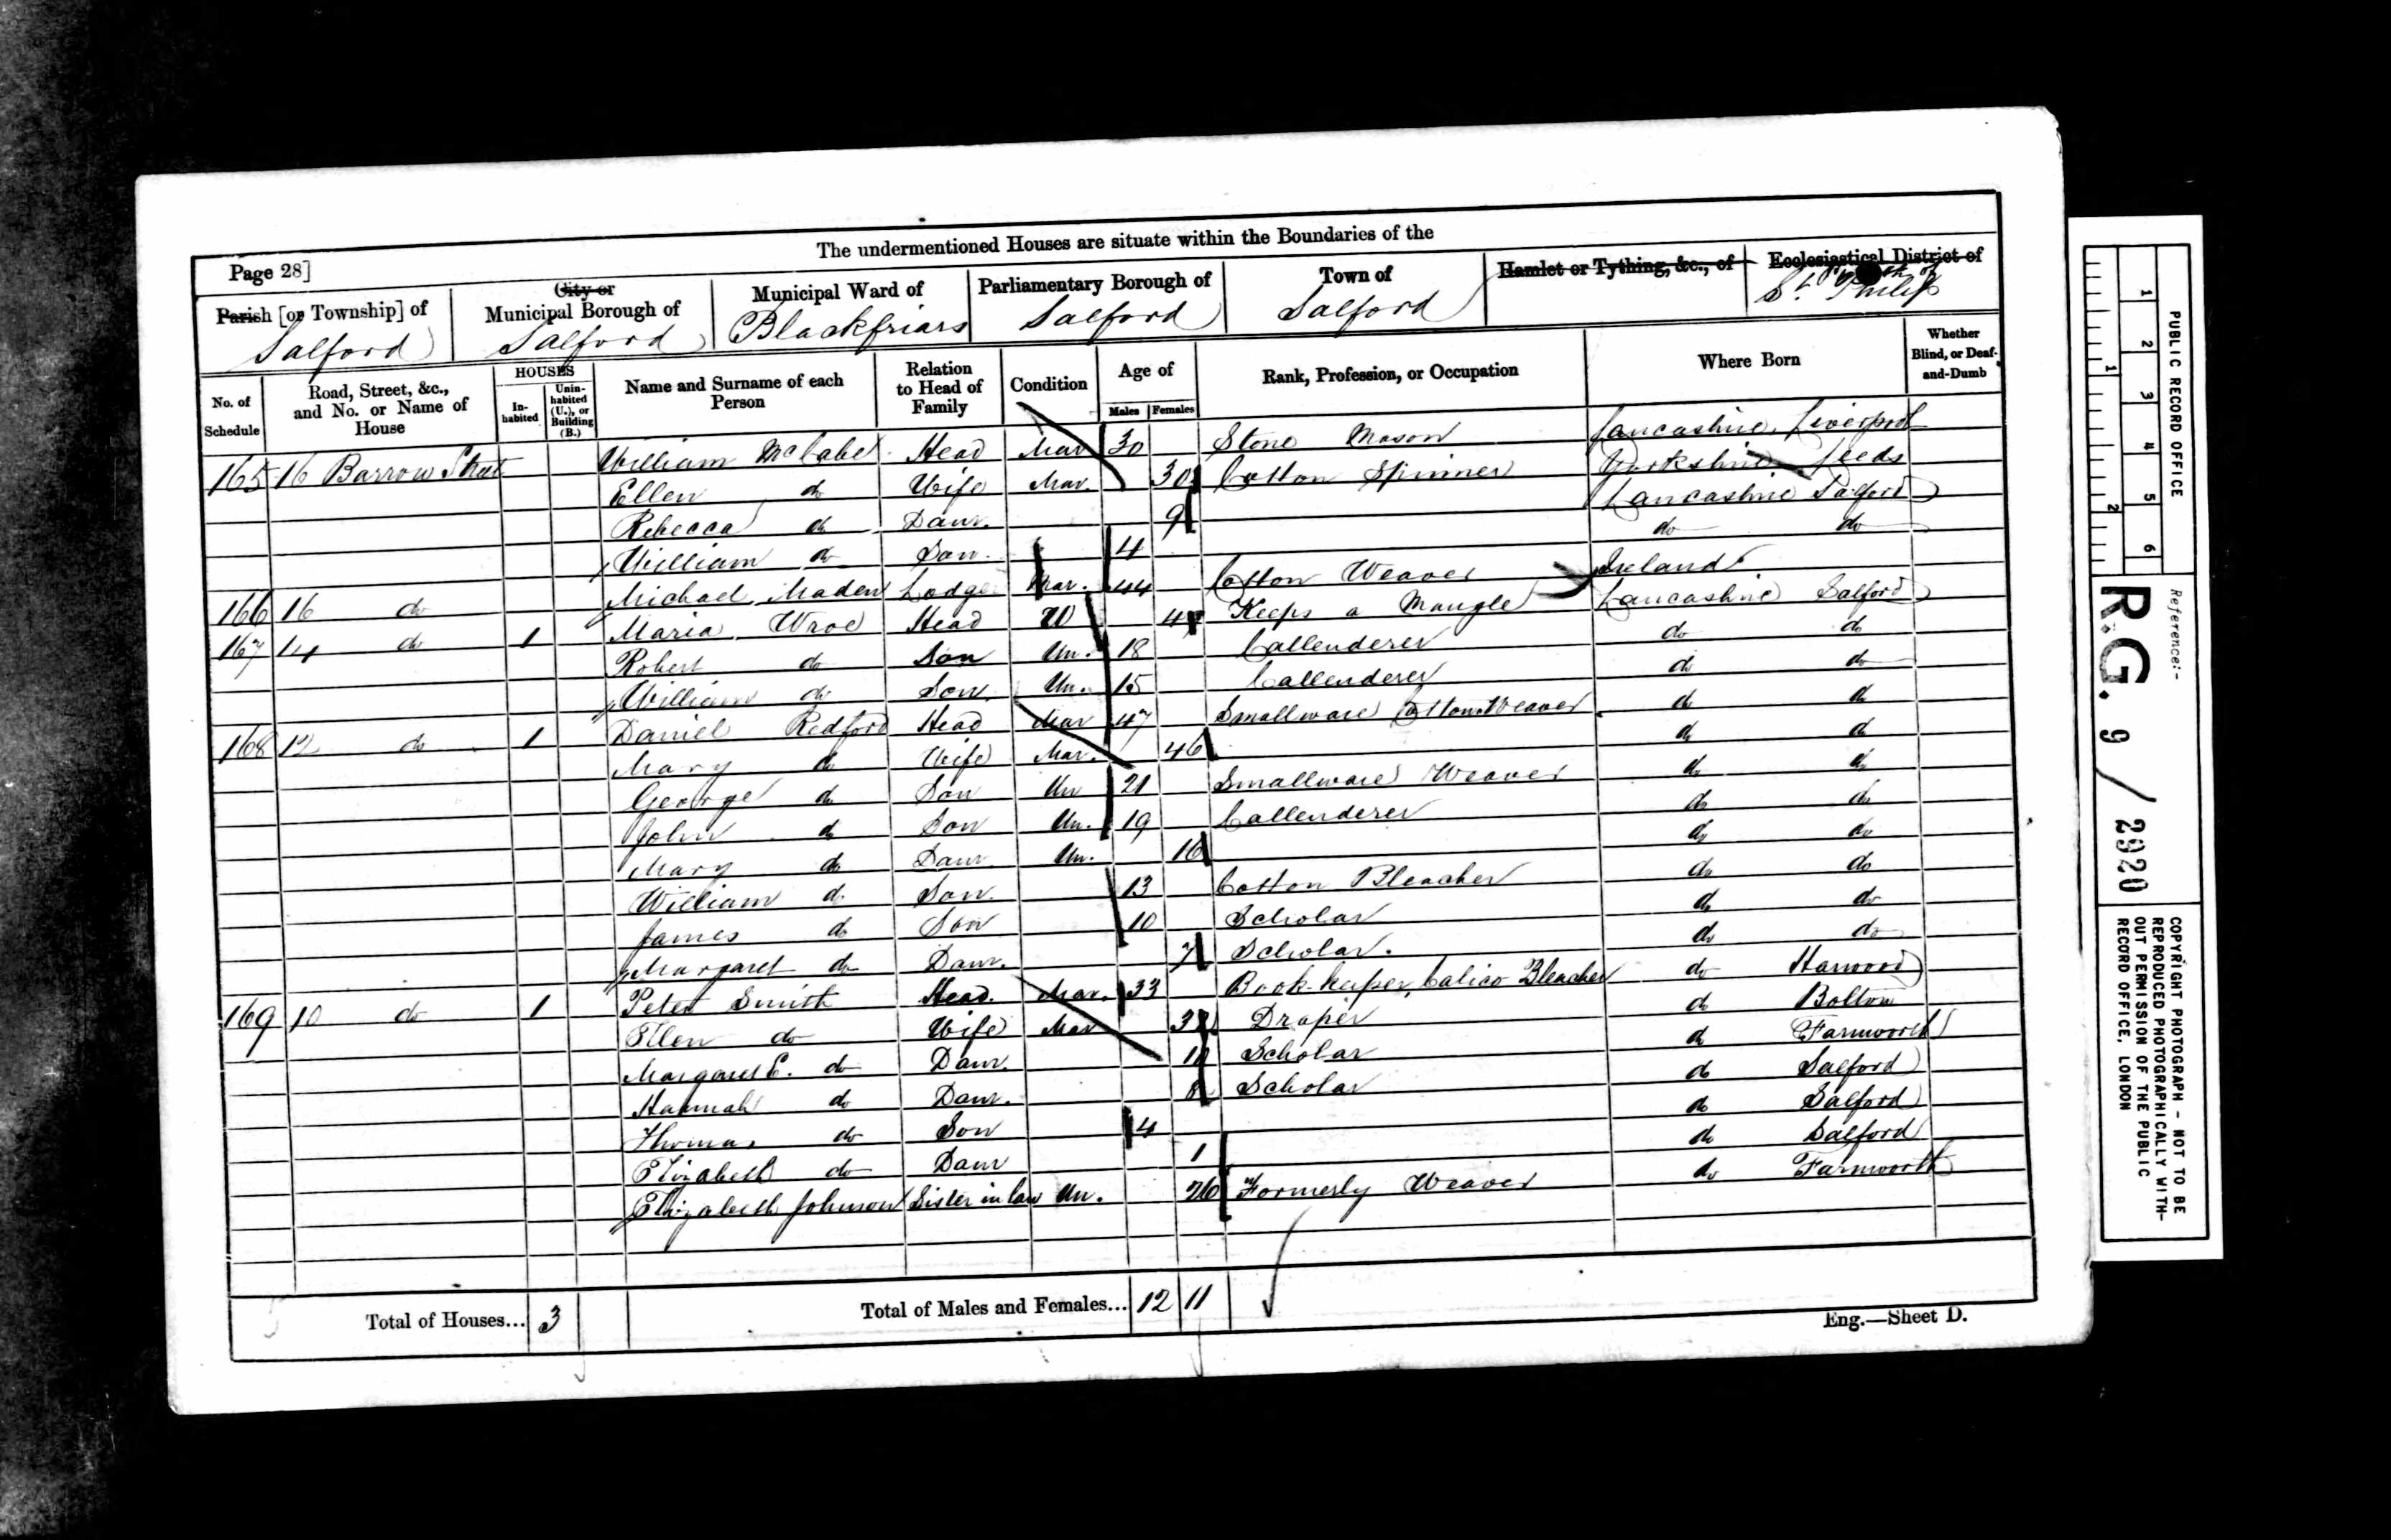 The undermentioned Houses are situate within the Boundaries of the
Page 28]
Parish [or Township] of
Salford
City or
Municipal Borough of
Salford
Municipal Ward of
Blackfriars
Parliamentary Borough of
Salford
Town of
Salford
Hamlet or Tything, &c., of
Ecclesiastical District of
St. Philip
No. of Schedule
Road, Street, &c., and No. or Name of House
HOUSES
In-habited
Unin-habited (U.), or Building (B.)
Name and Surname of each Person
Relation to Head of Family
Condition
Age of
Males
Females
Rank, Profession, or Occupation
Where Born
Whether Blind, or Deaf-and-Dumb
165 16 Barrow Street William McCabe Head Mar 30 Stone Mason Lancashire, Liverpool
Ellen do Wife Mar. 30 Cotton Spinner Yorkshire Leeds
Rebecca do Daur. 9 Lancashire Salford
William do Son. 4 do do
166 16 do Michael Maden Lodger Mar. 44 Cotton Weaver Ireland
167 14 do 1 Maria Wroe Head W Keeps a Mangle Lancashire Salford
Robert do Son Un. 18 Callenderer do do
William do Son Un. 15 Callenderer do do
168 12 do 1 Daniel Redford Head Mar 47 Smallware Cotton Weaver do do
Mary do Wife Mar. 46 do do
George do Son Un 21 Smallware Weaver do do
John do Son Un. 19 Callenderer do do
Mary do Daur. Un. 16 do do
William do Son. 13 Cotton Bleacher do do
James do Son 10 Scholar do do
Margaret do Daur. 7 Scholar. do do
169 10 do 1 Peter Smith Head. Mar. 33 Book-keeper, Calico Bleacher do Harwood
Ellen do Wife Mar Draper do Bolton
Margaret E. do Daur. Scholar do Farnworth
Hannah do Daur. 8 Scholar do Salford
Thomas do Son 4 do Salford
Elizabeth do Daur 1 do Salford
Elizabeth Johnson Sister in law Un. 26 Formerly Weaver do Farnworth
Total of Houses... 3
Total of Males and Females... 12 11
Eng.—Sheet D.
1 2 3 4 5 6
1 2
PUBLIC RECORD OFFICE
Reference:-
R.G. 9 / 2920
COPYRIGHT PHOTOGRAPH - NOT TO BE
REPRODUCED PHOTOGRAPHICALLY WITH-
OUT PERMISSION OF THE PUBLIC
RECORD OFFICE, LONDON